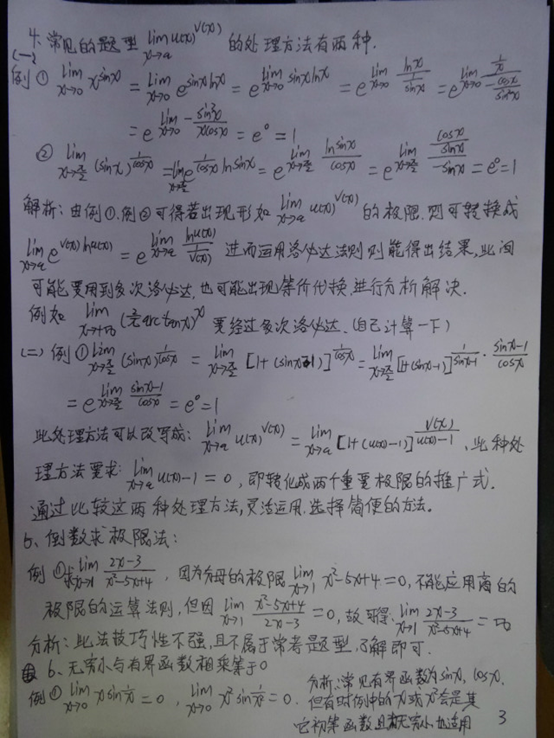 4. 常见的题型 lim_{x→a} u(x)^{v(x)} 的处理方法有两种.
(一)
例① lim_{x→0} x^{sinx} = lim_{x→0} e^{sinxlnx} = e^{lim_{x→0} sinxlnx} = e^{lim_{x→0} lnx/(1/sinx)} = e^{lim_{x→0} (1/x)/(-cosx/sin²x)}
= e^{lim_{x→0} -sin²x/(xcosx)} = e⁰ = 1
② lim_{x→π/2} (sinx)^{1/cosx} = lim_{x→π/2} e^{(1/cosx) lnsinx} = e^{lim_{x→π/2} lnsinx/cosx} = e^{lim_{x→π/2} (cosx/sinx)/(-sinx)} = e⁰ = 1
解析: 由例①.例②可得若出现形如 lim_{x→a} u(x)^{v(x)} 的极限. 则可转换成
lim_{x→a} e^{v(x)lnu(x)} = e^{lim_{x→a} lnu(x)/(1/v(x))} 进而运用洛必达法则则能得出结果, 此间
可能要用到多次洛必达, 也可能出现等价代换, 进行分析解决.
例如 lim_{x→+∞} (2/π arctanx)^x 要经过多次洛必达. (自己计算一下)
(二) 例① lim_{x→π/2} (sinx)^{1/cosx} = lim_{x→π/2} [1+(sinx-1)]^{1/cosx} = lim_{x→π/2} [1+(sinx-1)]^{1/(sinx-1) · (sinx-1)/cosx}
= e^{lim_{x→π/2} (sinx-1)/cosx} = e⁰ = 1
此处理方法可以改写成: lim_{x→a} u(x)^{v(x)} = lim_{x→a} [1+(u(x)-1)]^{v(x)/(u(x)-1)}, 此种处
理方法要求: lim_{x→a} u(x)-1 = 0, 即转化成两个重要极限的推广式.
通过比较这两种处理方法, 灵活运用. 选择简便的方法.
5、倒数求极限法:
例① 求 lim_{x→1} (2x-3)/(x²-5x+4), 因为分母的极限 lim_{x→1} x²-5x+4=0, 不能应用商的
极限的运算法则, 但因 lim_{x→1} (x²-5x+4)/(2x-3) = 0, 故可得: lim_{x→1} (2x-3)/(x²-5x+4) = ∞
分析: 此法技巧性不强, 且不属于常考题型. 了解即可.
6、无穷小与有界函数相乘等于0
例① lim_{x→0} x sin 1/x = 0, lim_{x→0} x² sin 1/x = 0. 分析: 常见有界函数为sinx, cosx.
但有时例中的x或x²会是其
它初等函数且为无穷小也适用
3